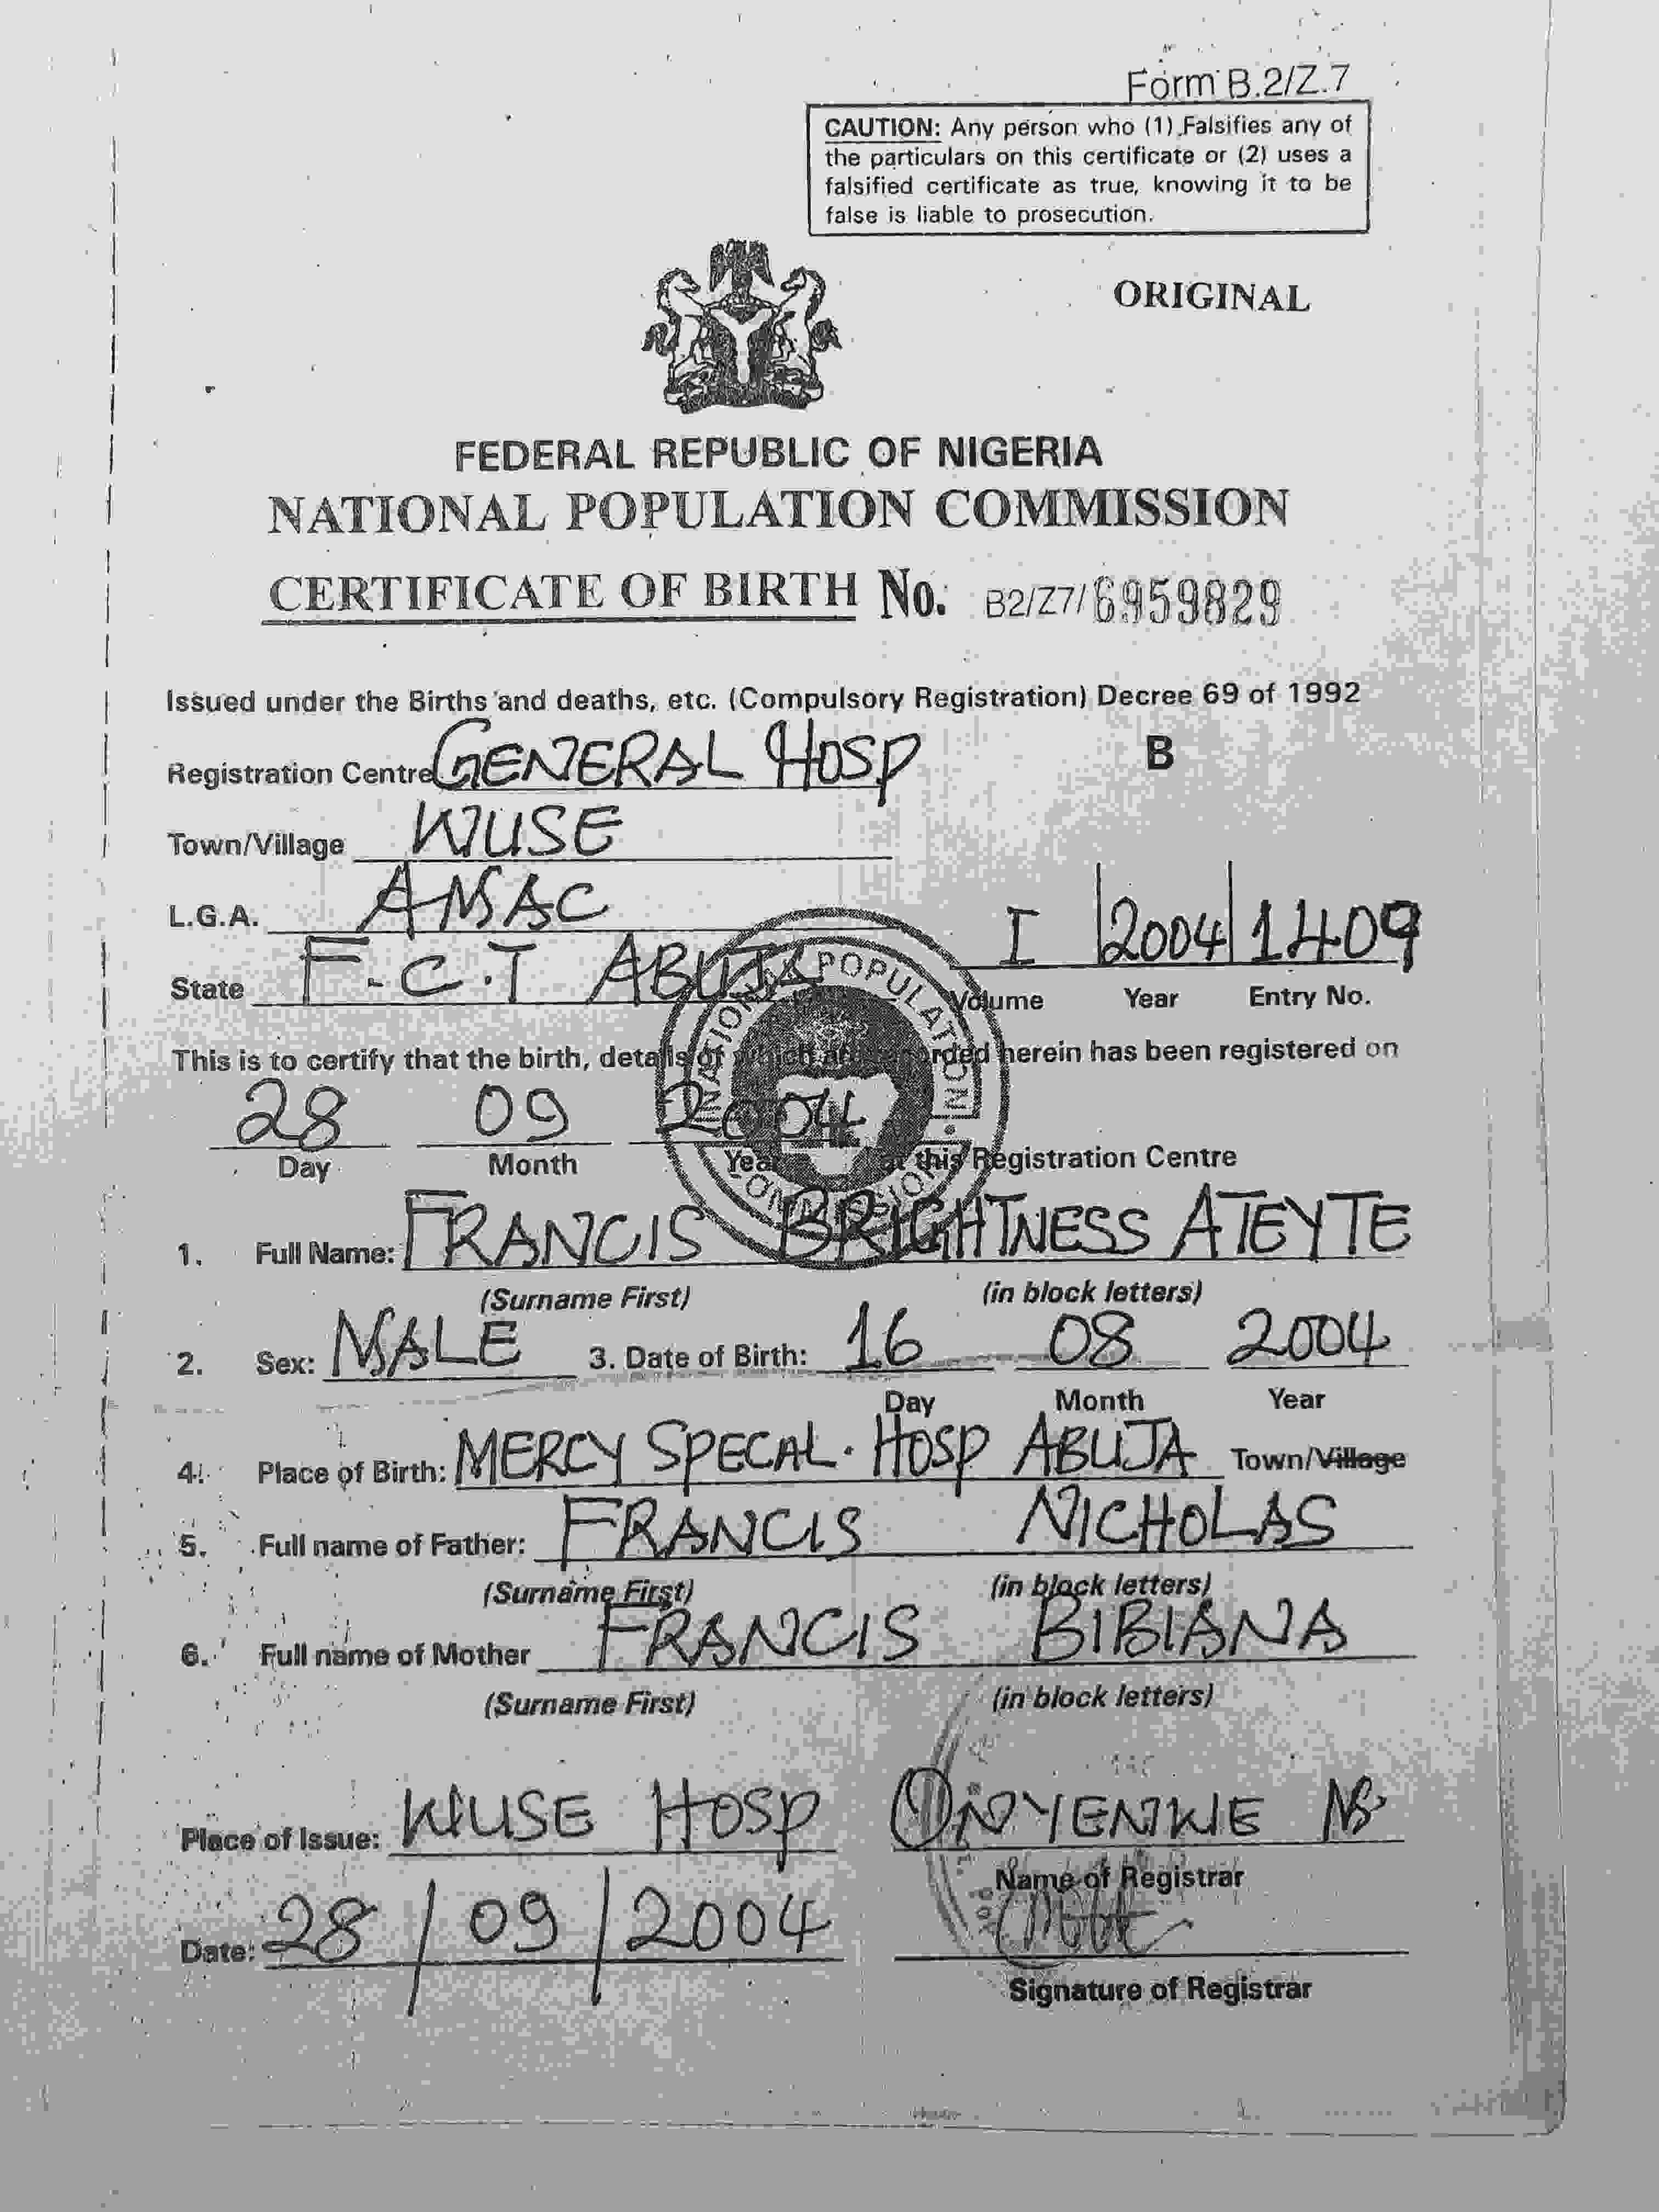 Form B.2/Z.7
CAUTION: Any person who (1) Falsifies any of
the particulars on this certificate or (2) uses a
falsified certificate as true, knowing it to be
false is liable to prosecution.
ORIGINAL
FEDERAL REPUBLIC OF NIGERIA
NATIONAL POPULATION COMMISSION
CERTIFICATE OF BIRTH No. B2/Z7/6959829
Issued under the Births and deaths, etc. (Compulsory Registration) Decree 69 of 1992
Registration Centre GENERAL HOSP
B
Town/Village WUSE
L.G.A. AMAC
I 2004 1409
State F.C.T ABUJA
Volume Year Entry No.
NATIONAL POPULATION COMMISSION
This is to certify that the birth, details of which are recorded herein has been registered on
28 09 2004
Day Month Year at this Registration Centre
1. Full Name: FRANCIS BRIGHTNESS ATEYTE
(Surname First) (in block letters)
2. Sex: MALE 3. Date of Birth: 16 08 2004
Day Month Year
4. Place of Birth: MERCY SPECAL. HOSP ABUJA Town/Village
5. Full name of Father: FRANCIS NICHOLAS
(Surname First) (in block letters)
6. Full name of Mother FRANCIS BIBIANA
(Surname First) (in block letters)
Place of Issue: WUSE HOSP ONYENKWE
Name of Registrar
Date: 28/09/2004
Signature of Registrar